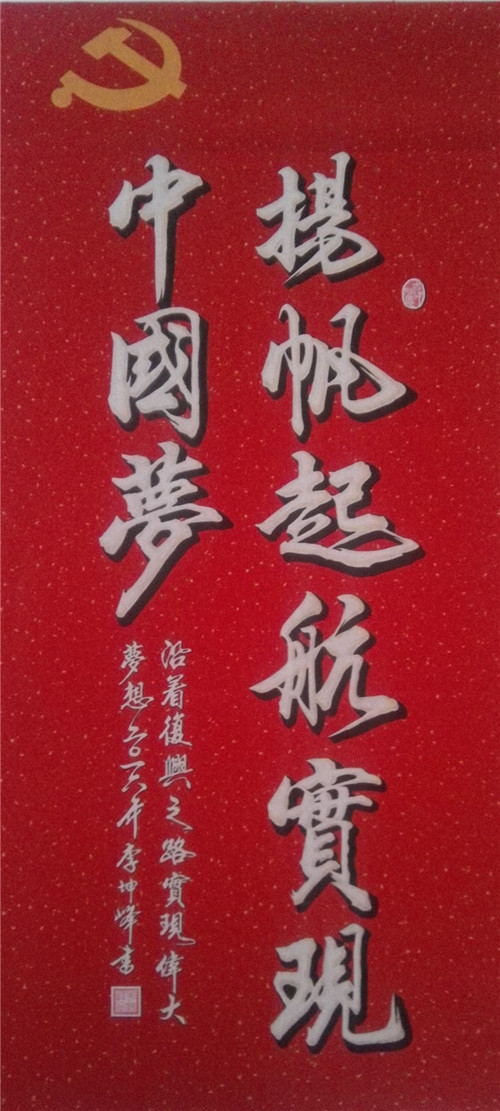 揚帆起航實現
中國夢
沿着復興之路實現偉大
夢想二〇一六年李坤峰書